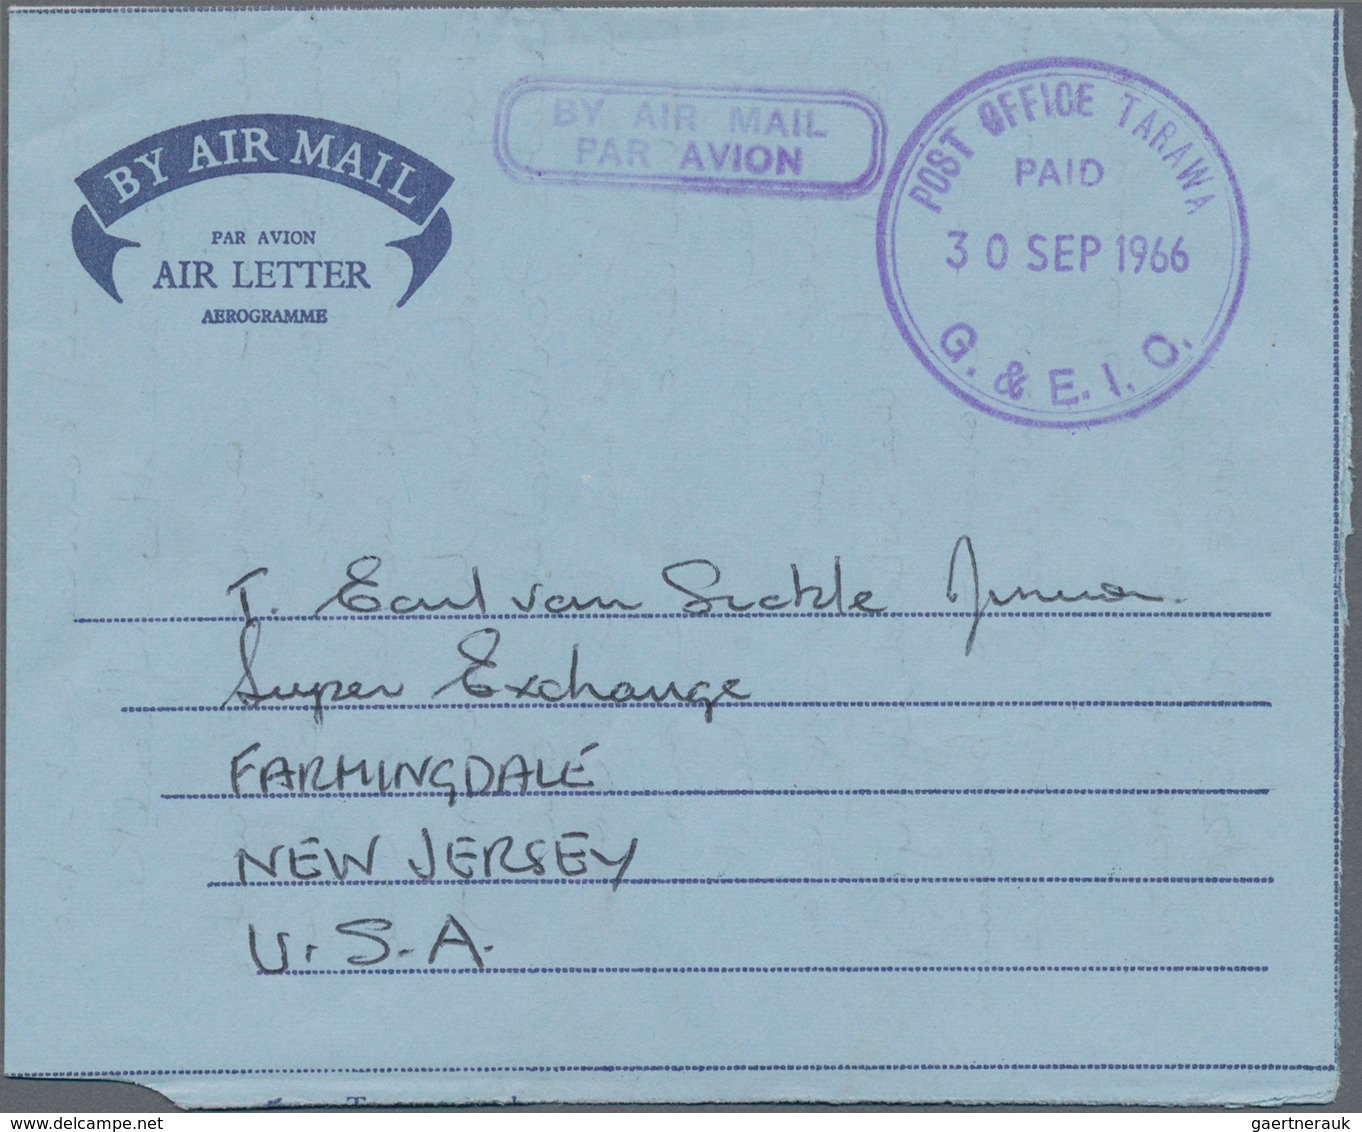 BY AIR MAIL
PAR AVION
AIR LETTER
AEROGRAMME
BY AIR MAIL
PAR AVION
POST OFFICE TARAWA
PAID
30 SEP 1966
G. & E. I. O.
T. Earl van Sickle Junior
Super Exchange
FARMINGDALE
NEW JERSEY
U.S.A.
www.delcampe.net
gaertnerauk